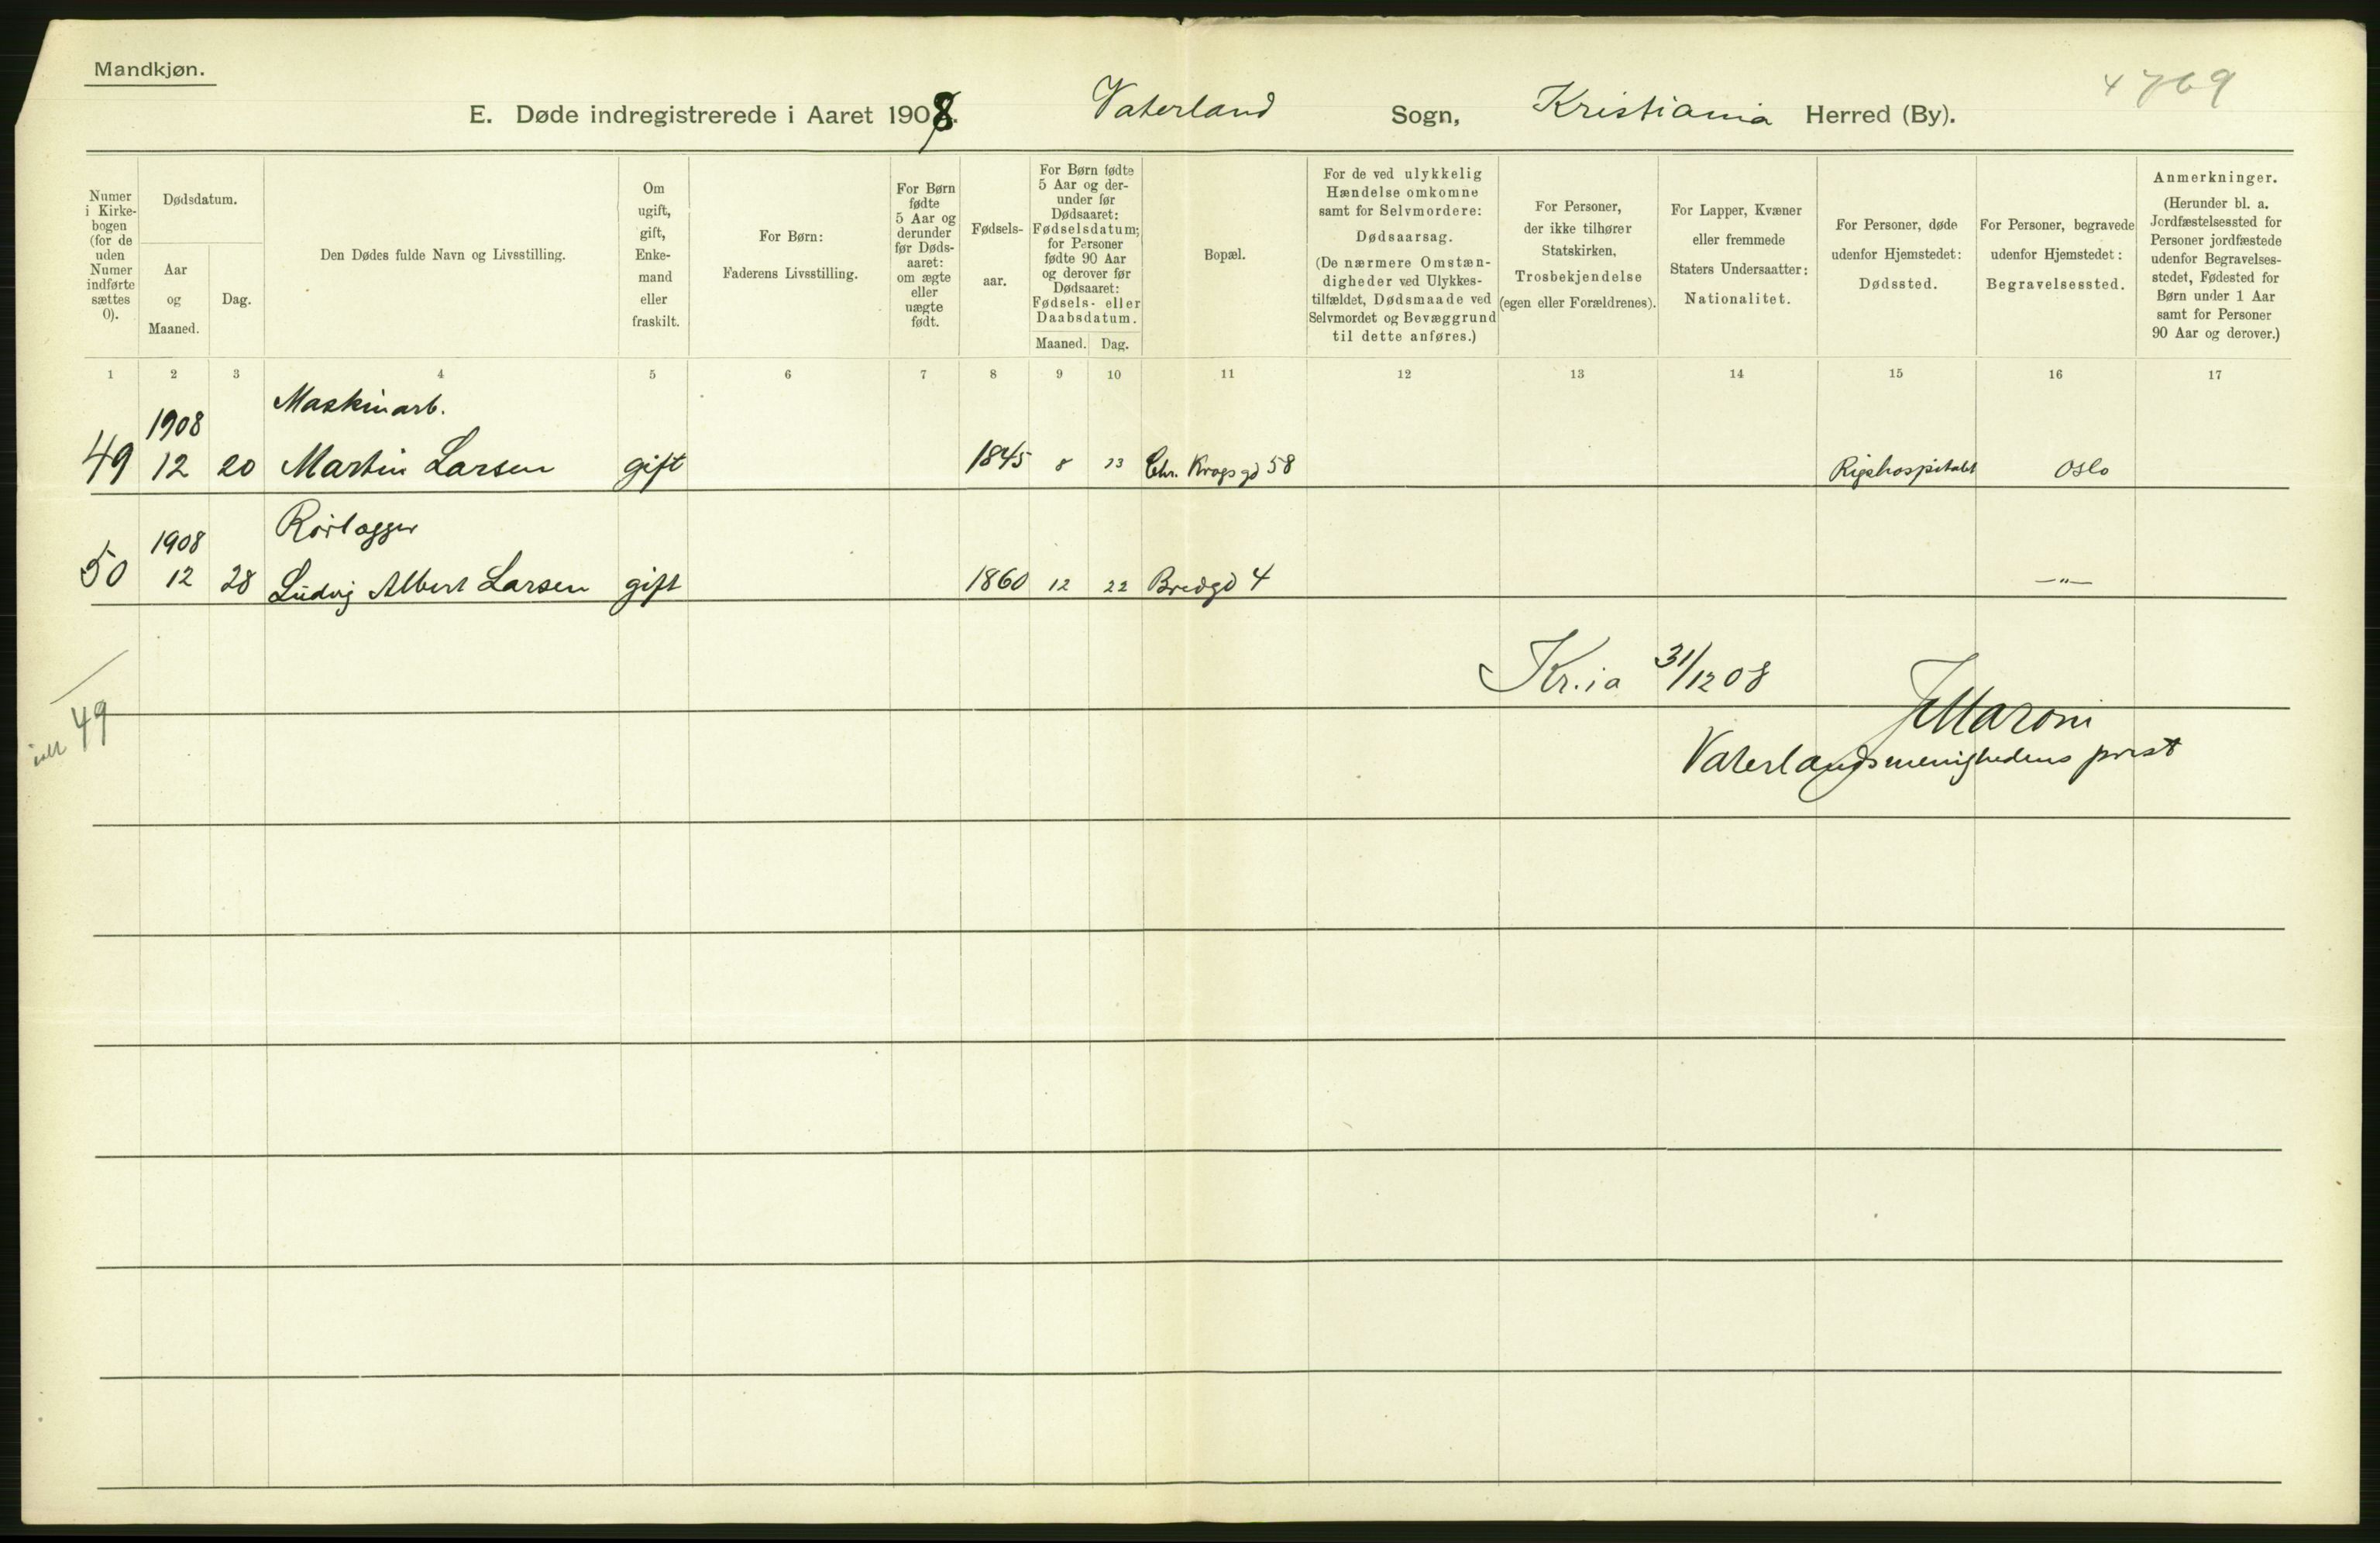 Mandkjøn.
4769
E. Døde indregistrerede i Aaret 1908. Vaterland Sogn, Kristiania Herred (By).
Numer i Kirke-bogen (for de uden Numer indførte sættes 0).
Dødsdatum.
Aar og Maaned.
Dag.
Den Dødes fulde Navn og Livsstilling.
Om ugift, gift, Enke-mand eller fraskilt.
For Børn: Faderens Livsstilling.
For Børn fødte 5 Aar og derunder før Døds-aaret: om ægte eller uægte født.
Fødsels-aar.
For Børn fødte 5 Aar og der-under før Dødsaaret: Fødselsdatum; for Personer fødte 90 Aar og derover før Dødsaaret: Fødsels- eller Daabsdatum.
Maaned. Dag.
Bopæl.
For de ved ulykkelig Hændelse omkomne samt for Selvmordere: Dødsaarsag. (De nærmere Omstæn-digheder ved Ulykkes-tilfældet, Dødsmaade ved Selvmordet og Bevæggrund til dette anføres.)
For Personer, der ikke tilhører Statskirken, Trosbekjendelse (egen eller Forældrenes).
For Lapper, Kvæner eller fremmede Staters Undersaatter: Nationalitet.
For Personer, døde udenfor Hjemstedet: Dødssted.
For Personer, begravede udenfor Hjemstedet: Begravelsessted.
Anmerkninger. (Herunder bl. a. Jordfæstelsessted for Personer jordfæstede udenfor Begravelses-stedet, Fødested for Børn under 1 Aar samt for Personer 90 Aar og derover.)
1 2 3 4 5 6 7 8 9 10 11 12 13 14 15 16 17
1908 Maskinarb.
49 12 20 Martin Larsen gift 1845 8 23 Chr. Krogs gd 58 Rigshospitalet Oslo
1908 Rørlægger
50 12 28 Ludvig Albert Larsen gift 1860 12 22 Bredgd 4 —"—
Kr.ia 31/12 08
49
Maroni
Vaterlandsmenighedens prest